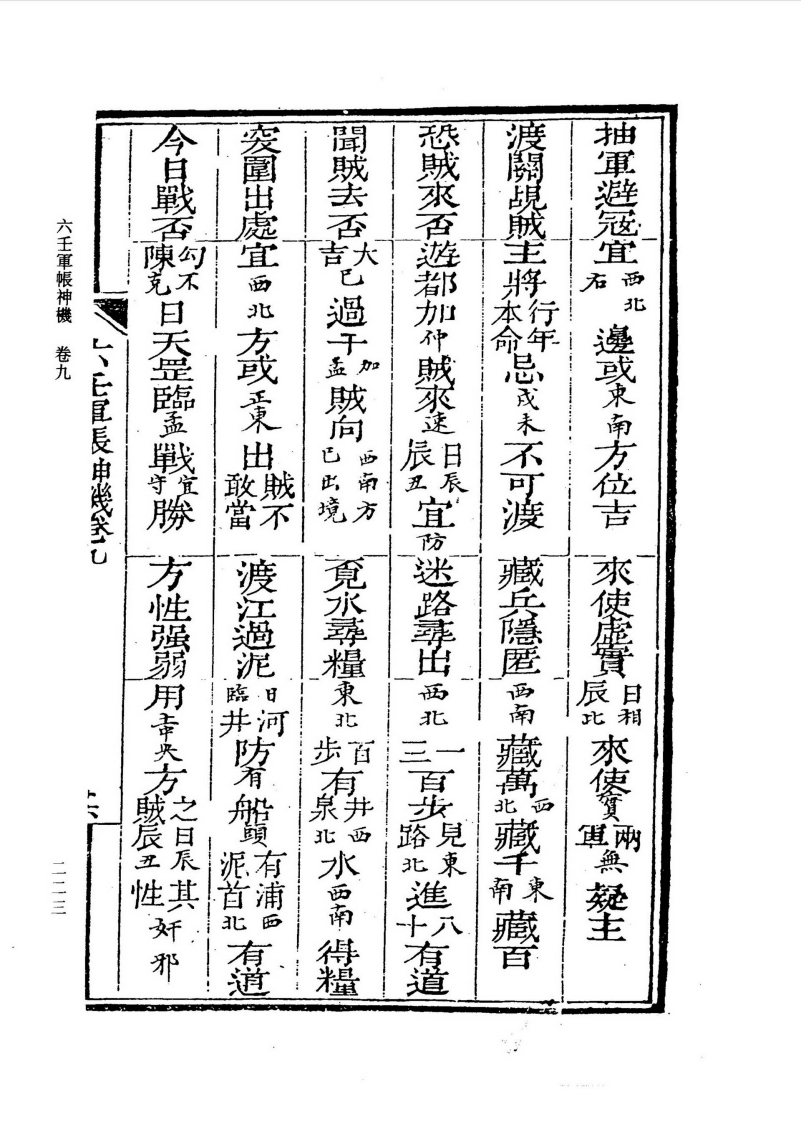 抽軍避冦宜西北右邊或東南方位吉
來使虛實日相辰比來使賀兩軍無疑主
渡關覘賊主將行年本命忌戌未不可渡
藏兵隱匿西南藏萬西北藏千東南藏百
恐賊來否遊都加仲賊來速日辰辰丑宜防
迷路尋出西北一三百步見東路北進八十有道
聞賊去否大吉已過干加孟賊向西南方已出境
覓水尋糧東北百步有井西泉北水西南得糧
突圍出處宜西北方或正東出賊不敢當
渡江過泥日臨河井防有船頭有浦西泥首北有道
今日戰否勾陳不克日天罡臨孟戰宜守勝
方性强弱用主中央方之日辰賊辰丑其性奸邪
六壬軍帳神機卷九
六壬軍帳神機 卷九
二二三